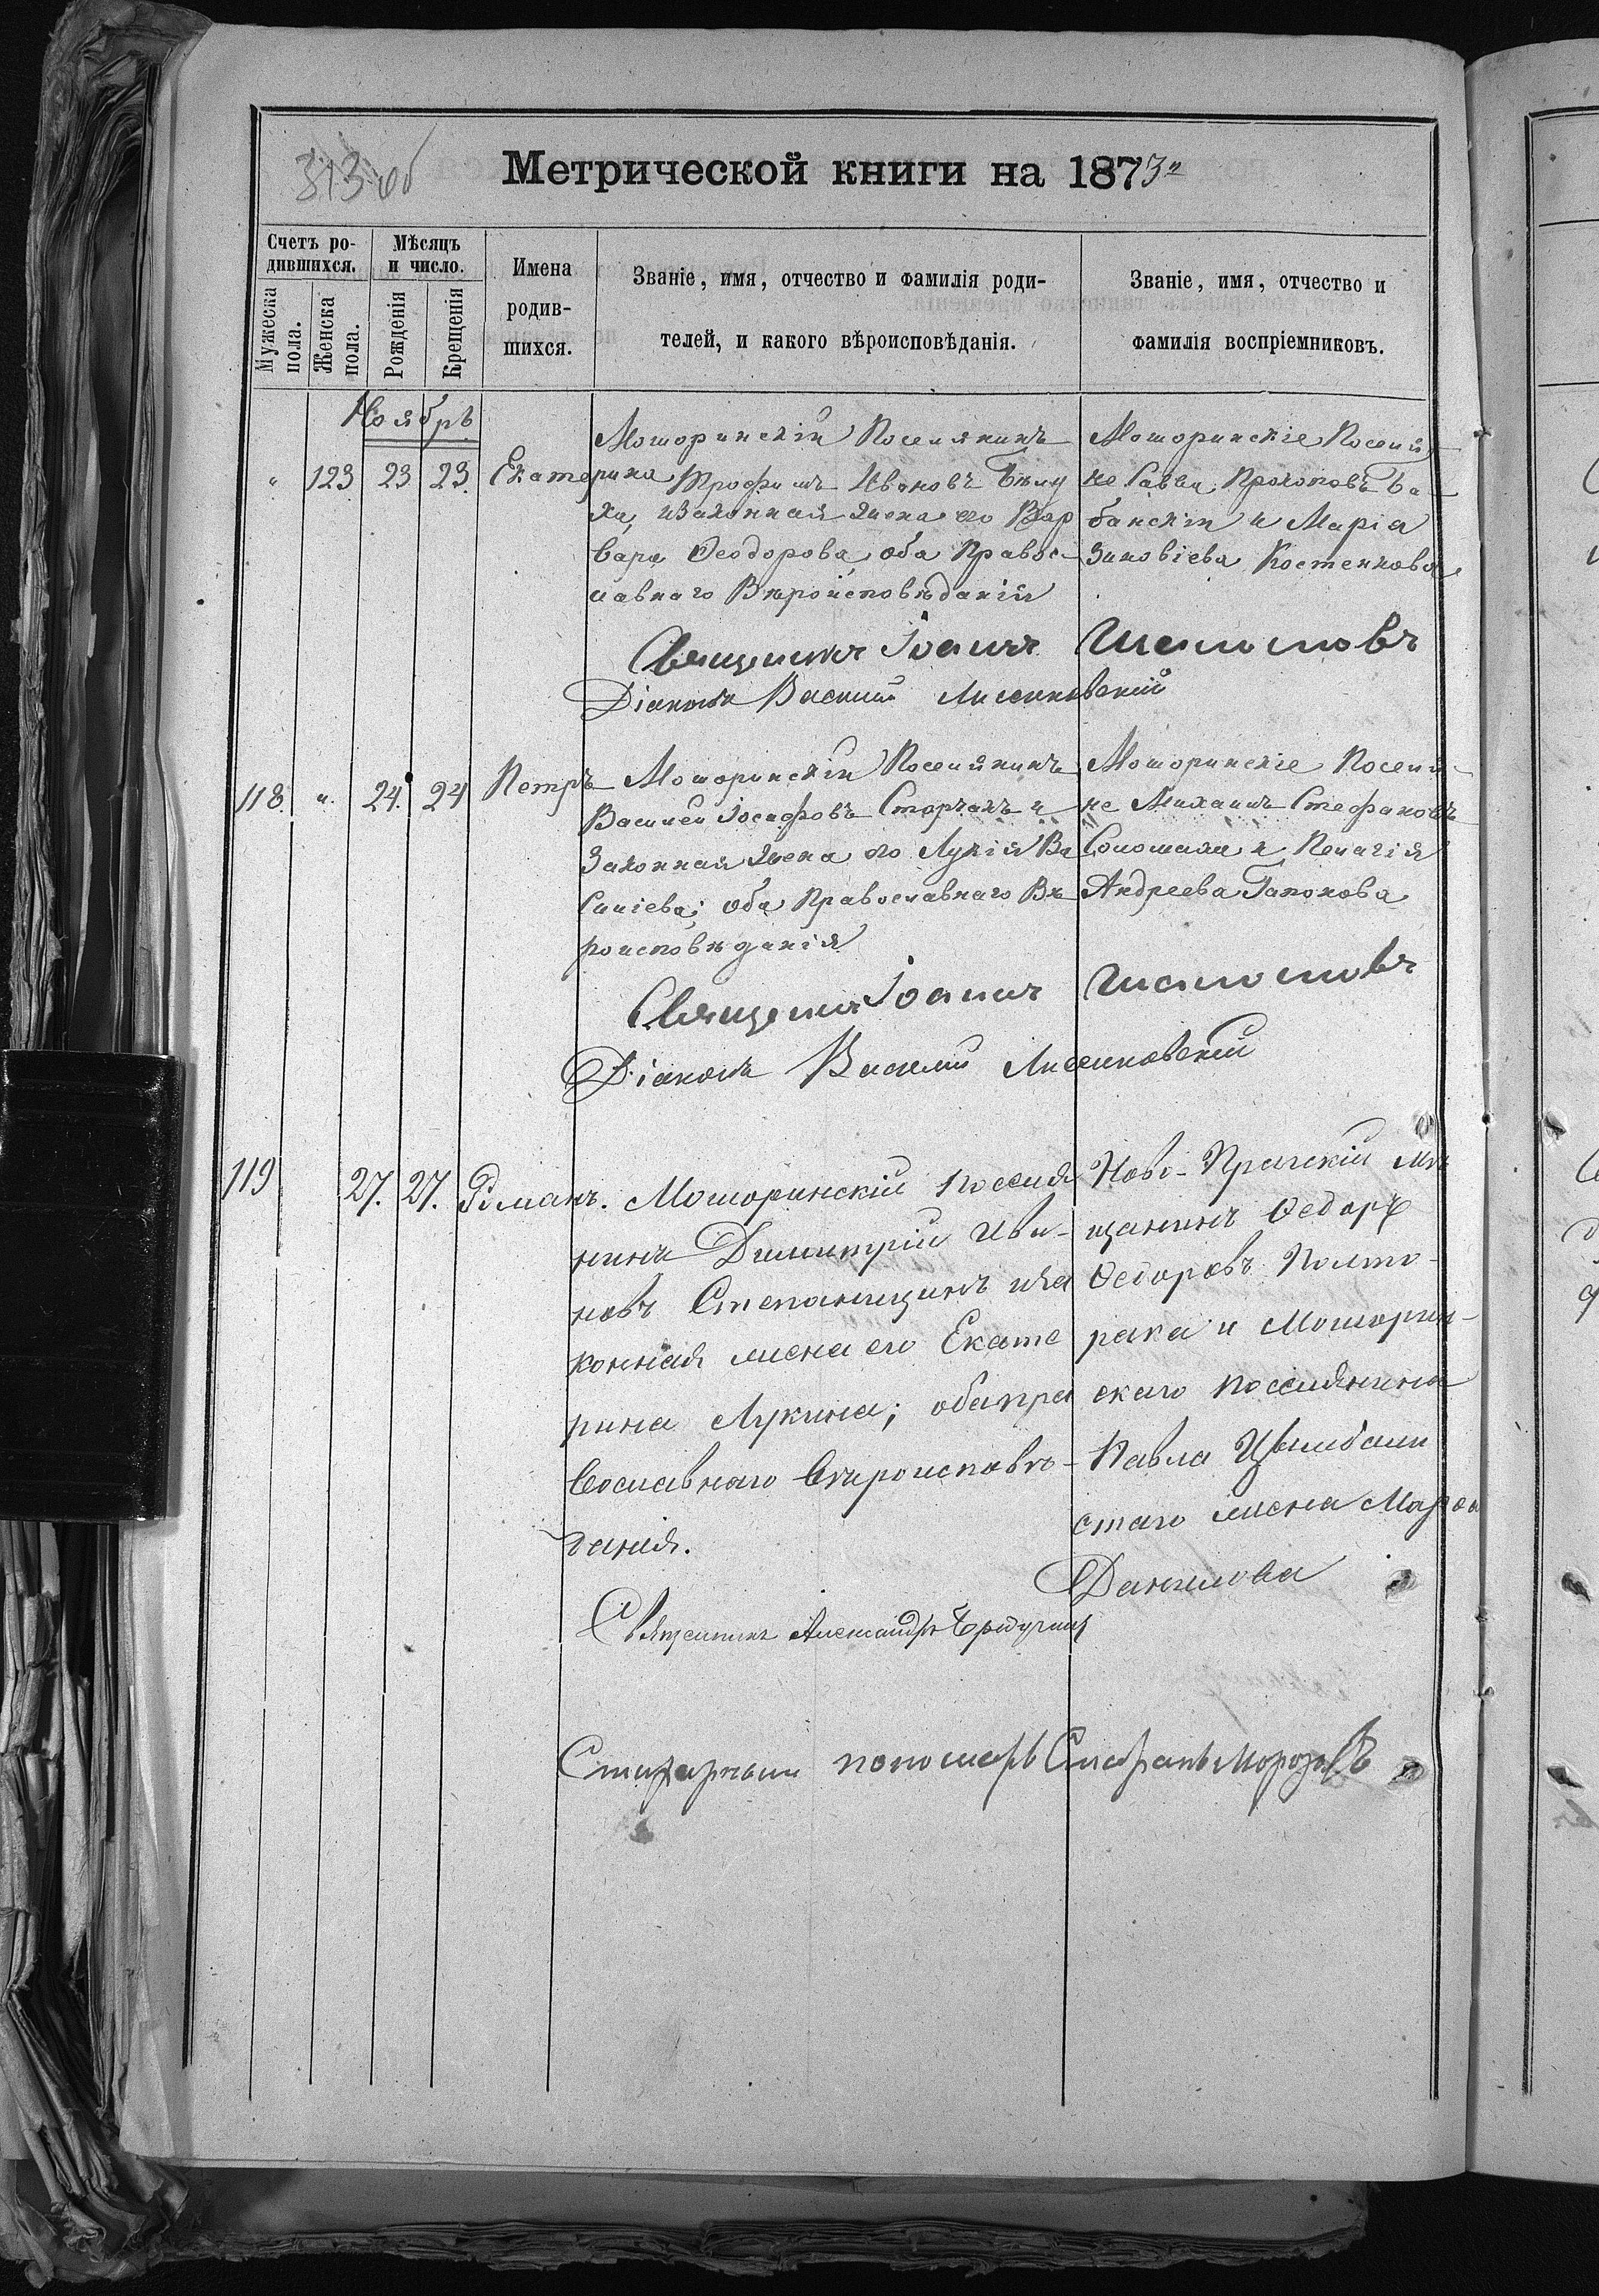 313 об
Метрической книги на 1873 г.
Счетъ родившихся.
Мѣсяцъ и число.
Имена родившихся.
Званіе, имя, отчество и фамилія родителей, и какого вѣроисповѣданія.
Званіе, имя, отчество и фамилія воспріемниковъ.
Мужеска пола.
Женска пола.
Рожденія
Крещенія
Ноябрь
" 123 23 23 Екатерина
Моторинскій Поселянинъ
Трофимъ Ивановъ Бѣлу
ха, изаконная жена его Вар
вара Ѳеодорова, оба Правос-
лавнаго Вѣроисповѣданія
Моторинскіе Поселя-
не Савва Прокоповъ Ба-
банскій и Марія
Зиновіева Костенкова
Священникъ Іоаннъ
Діаконъ Василий Лисенковский
118 " 24. 24 Петръ
Моторинскій Поселянинъ
Василій Іосифовъ Сторчакъ и
Законная жена его Лукія Ва
силіева; оба Православнаго Вѣ
роисповѣданія
Моторинскіе Поселя-
не Михаилъ Стефановъ
Соломаха и Пелагія
Андреева Гапонова
Священникъ Іоаннъ
Діаконъ Василий Лисенковский
119 27. 27. Романъ.
Моторинскій поселя
нинъ Димитрій Ива-
новъ Степанищинъ иза
конная жена его Екате
рина Лукина; оба пра
вославнаго вѣроисповѣ-
данія.
Ново-Прагскій мѣ
щанинъ Ѳедоръ
Ѳедоровъ Полто-
рака и Моторин-
скаго поселянина
Павла Цымбали
стаго жена Марѳа
Данилова
Священникъ Александръ
пономарь Стефанъ Морозовъ